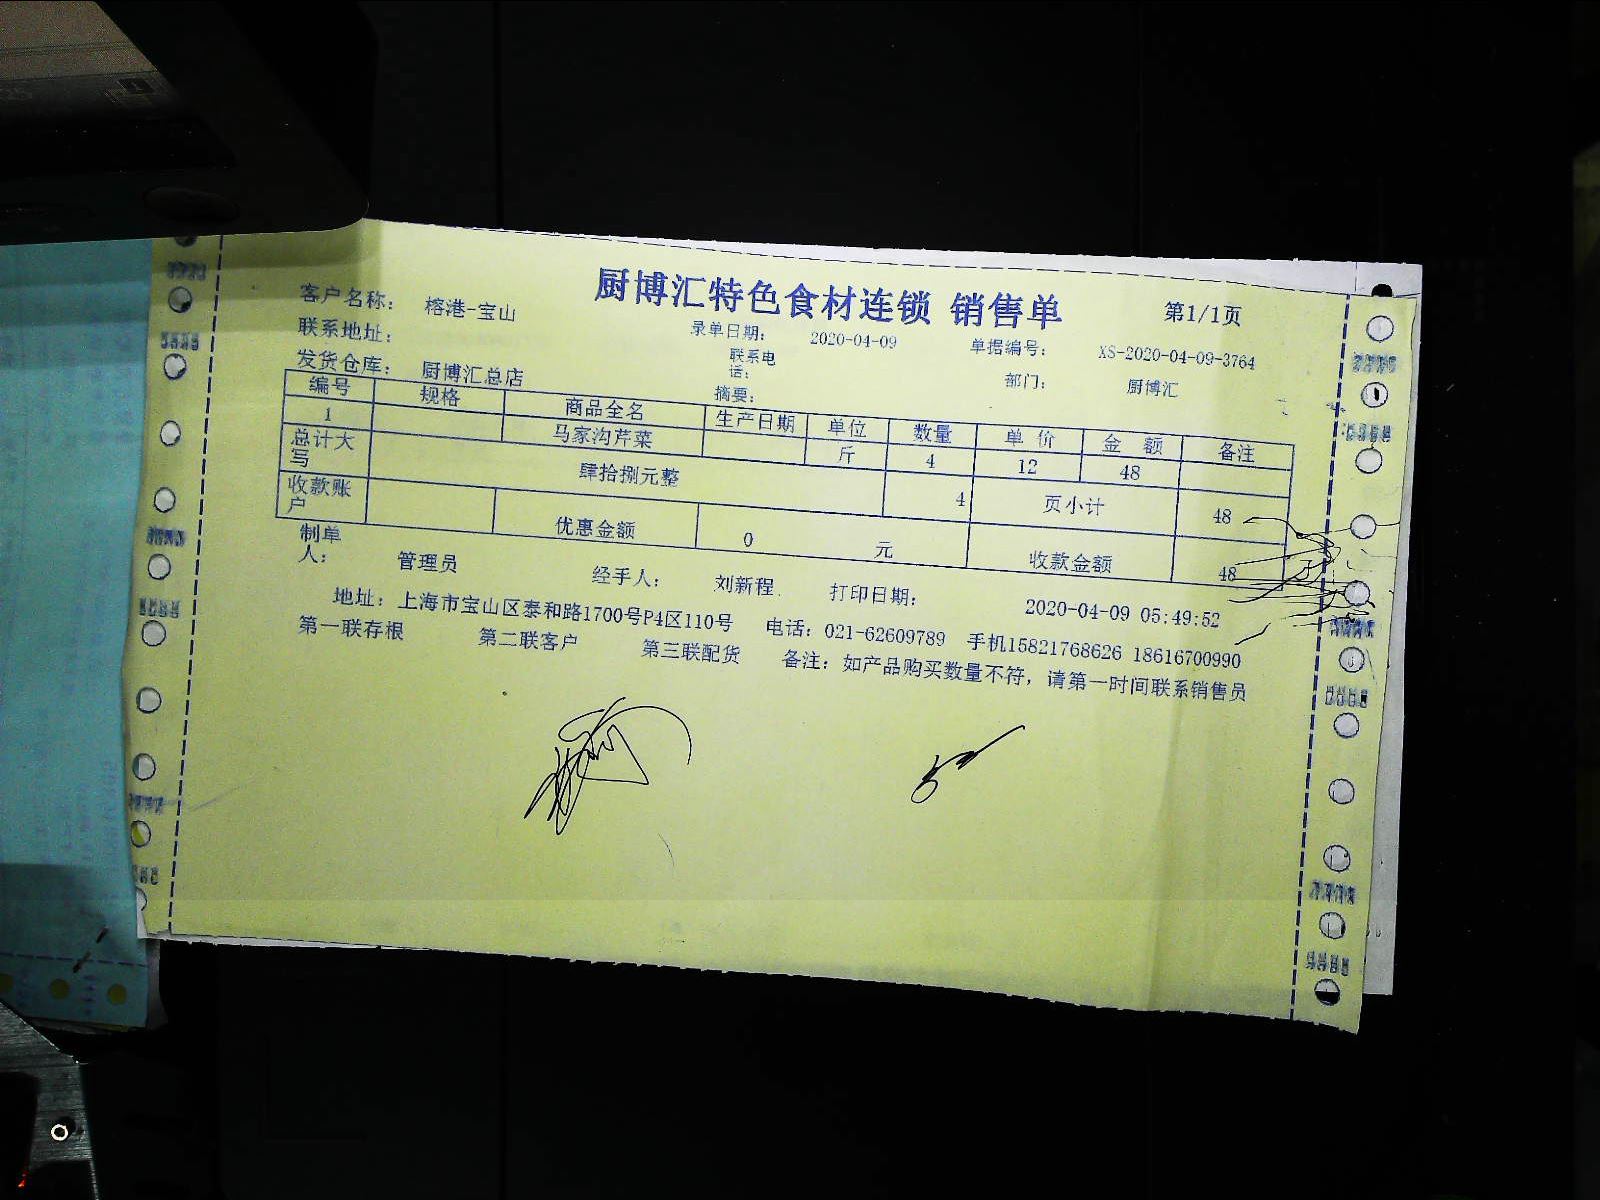 厨博汇特色食材连锁 销售单 第1/1页
客户名称: 榕港-宝山 录单日期: 2020-04-09 单据编号: XS-2020-04-09-3764
联系地址: 联系电话: 部门: 厨博汇
发货仓库: 厨博汇总店 摘要:
编号 规格 商品全名 生产日期 单位 数量 单 价 金 额 备注
1 马家沟芹菜 斤 4 12 48
总计大写 肆拾捌元整 4 页小计 48
收款账户 优惠金额 0 元 收款金额 48
制单人: 管理员 经手人: 刘新程 打印日期: 2020-04-09 05:49:52
地址: 上海市宝山区泰和路1700号P4区110号 电话: 021-62609789 手机15821768626 18616700990
第一联存根 第二联客户 第三联配货 备注: 如产品购买数量不符, 请第一时间联系销售员